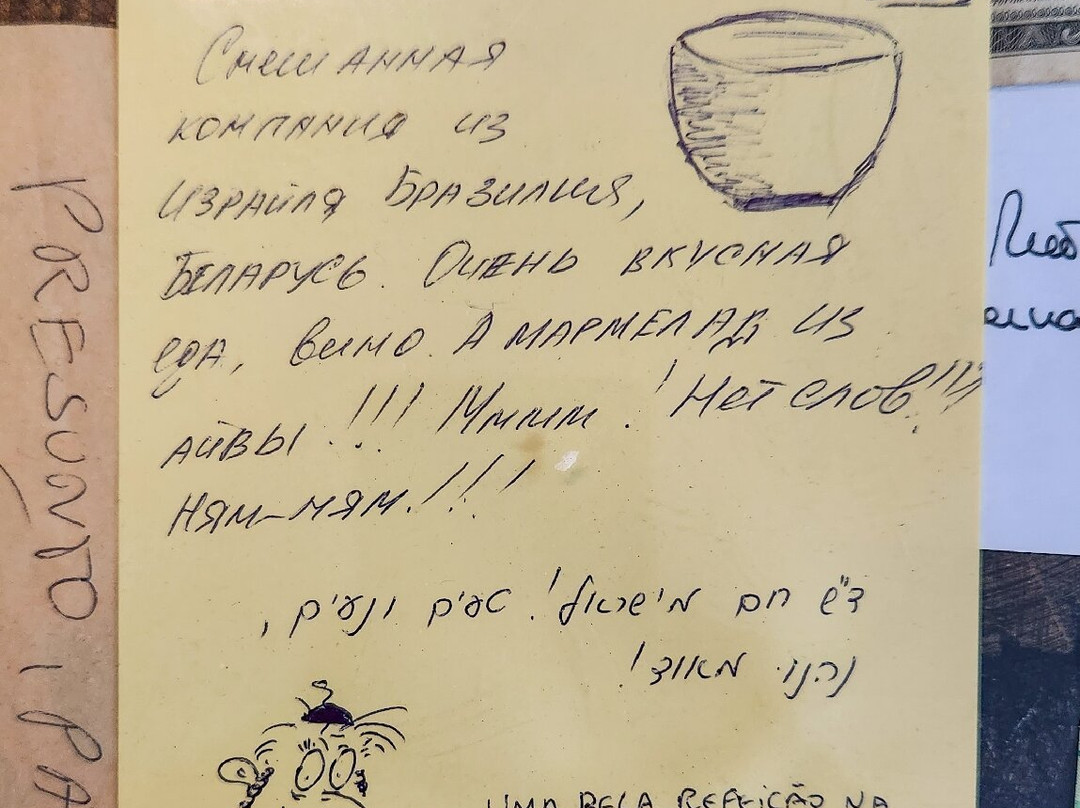 Смешанная
компания из
Израйля Бразилия,
Беларусь. Очень вкусная
еда, вино. А мармелад из
айвы!!! Мммм! Нет слов!!!!
Ням-ням!!!
ד"ש חם מישראל! טעים ונעים,
נהננו מאוד!
UMA BELA REFEIÇÃO NA
PRESUNTO, PA